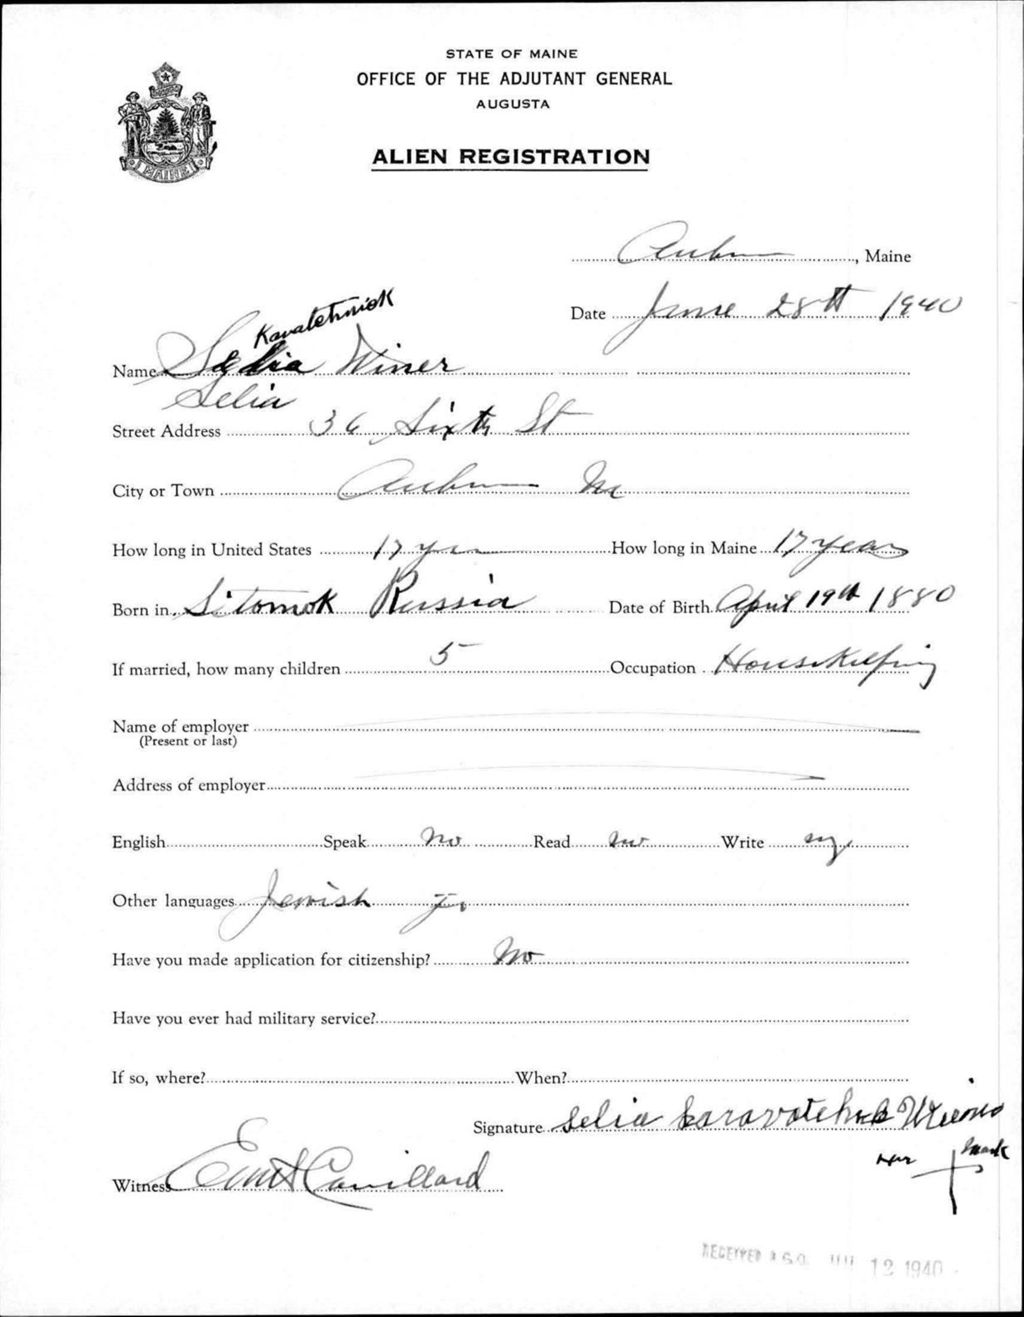 STATE OF MAINE
OFFICE OF THE ADJUTANT GENERAL
AUGUSTA
ALIEN REGISTRATION
MAINE
Auburn, Maine
Date June 28th 1940
Kavatchnick
Name Selia Winer
Selia
Street Address 36 Sixth St
City or Town Auburn Me
How long in United States 17 yrs How long in Maine 17 years
Born in Sitomok Russia Date of Birth April 19th 1880
If married, how many children 5 Occupation Housekeeping
Name of employer
(Present or last)
Address of employer
English Speak No Read no Write no
Other languages Jewish
Have you made application for citizenship? No
Have you ever had military service?
If so, where? When?
Signature Selia
Her mark
Witness
RECEIVED A.G.O. JUL 12 1940